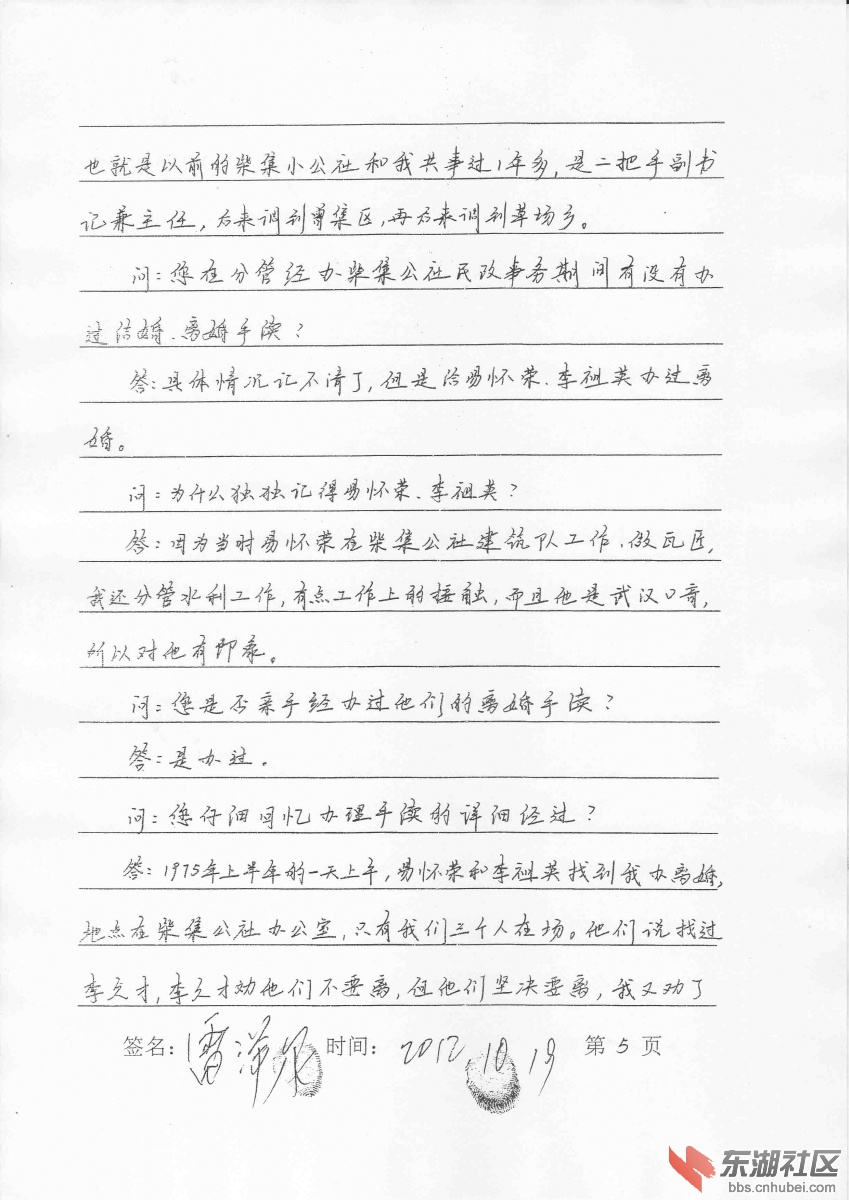 也就是以前的柴集小公社和我共事过1年多，是二把手副书
记兼主任，后来调到曾集区，再后来调到草场乡。
问：您在分管经办柴集公社民政事务期间有没有办
过结婚、离婚手续？
答：具体情况记不清了，但是给易怀荣、李祖英办过离
婚。
问：为什么独独记得易怀荣、李祖英？
答：因为当时易怀荣在柴集公社建筑队工作、做瓦匠，
我还分管水利工作，有点工作上的接触，而且他是武汉口音，
所以对他有印象。
问：您是否亲手经办过他们的离婚手续？
答：是办过.
问：您仔细回忆办理手续的详细经过？
答：1975年上半年的一天上午，易怀荣和李祖英找到我办离婚，
地点在柴集公社办公室，只有我们三个人在场。他们说找过
李之才，李之才劝他们不要离，但他们坚决要离，我又劝了
签名： 时间： 2012.10.19 第 5 页
东湖社区
bbs.cnhubei.com